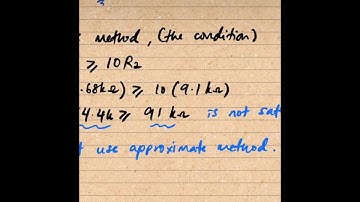 method, (the condition)
≥ 10R2
.68kΩ) ≥ 10 (9.1kΩ)
4.4k ≥ 91 kΩ is not sat
use approximate method.